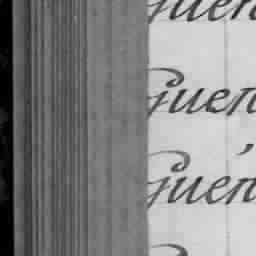 Guen
Guen
Guén